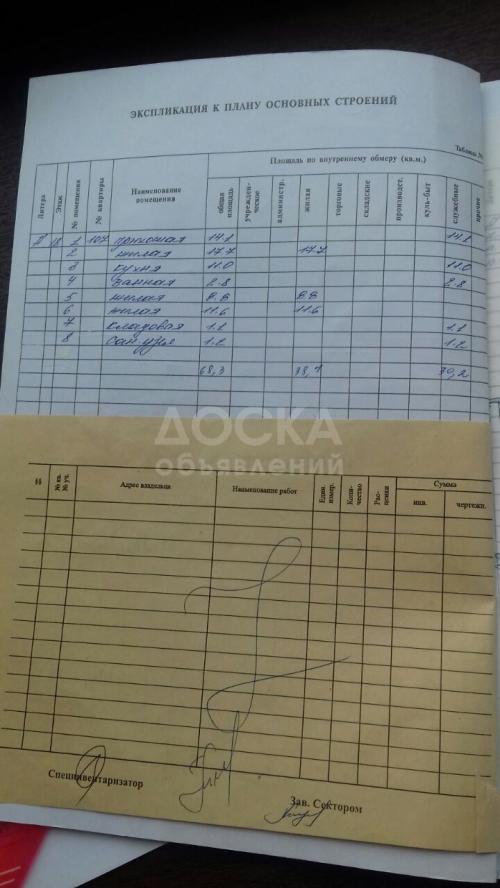 ЭКСПЛИКАЦИЯ К ПЛАНУ ОСНОВНЫХ СТРОЕНИЙ
Таблица №
Литера
Этаж
№ помещения
№ квартиры
Наименование помещения
Площадь по внутреннему обмеру (кв.м.)
общая площадь
учрежден-ческое
администр.
жилая
торговые
складские
производст.
куль-быт
служебные
прочие
1 107 прихожая 14.1 14.1
2 жилая 17.7 17.7
3 кухня 11.0 11.0
4 ванная 2.8 2.8
5 жилая 8.8 8.8
6 жилая 11.6 11.6
7 кладовая 1.1 1.1
8 сан.узел 1.2 1.2
68,3 38,1 30,2
ДОСКА
объявлений
№ кв. № уч.
Адрес владельца
Наименование работ
Един. измер.
Коли-чество
Рас-ценки
Сумма
инв.
чертежн.
Специнвентаризатор
Зав. Сектором